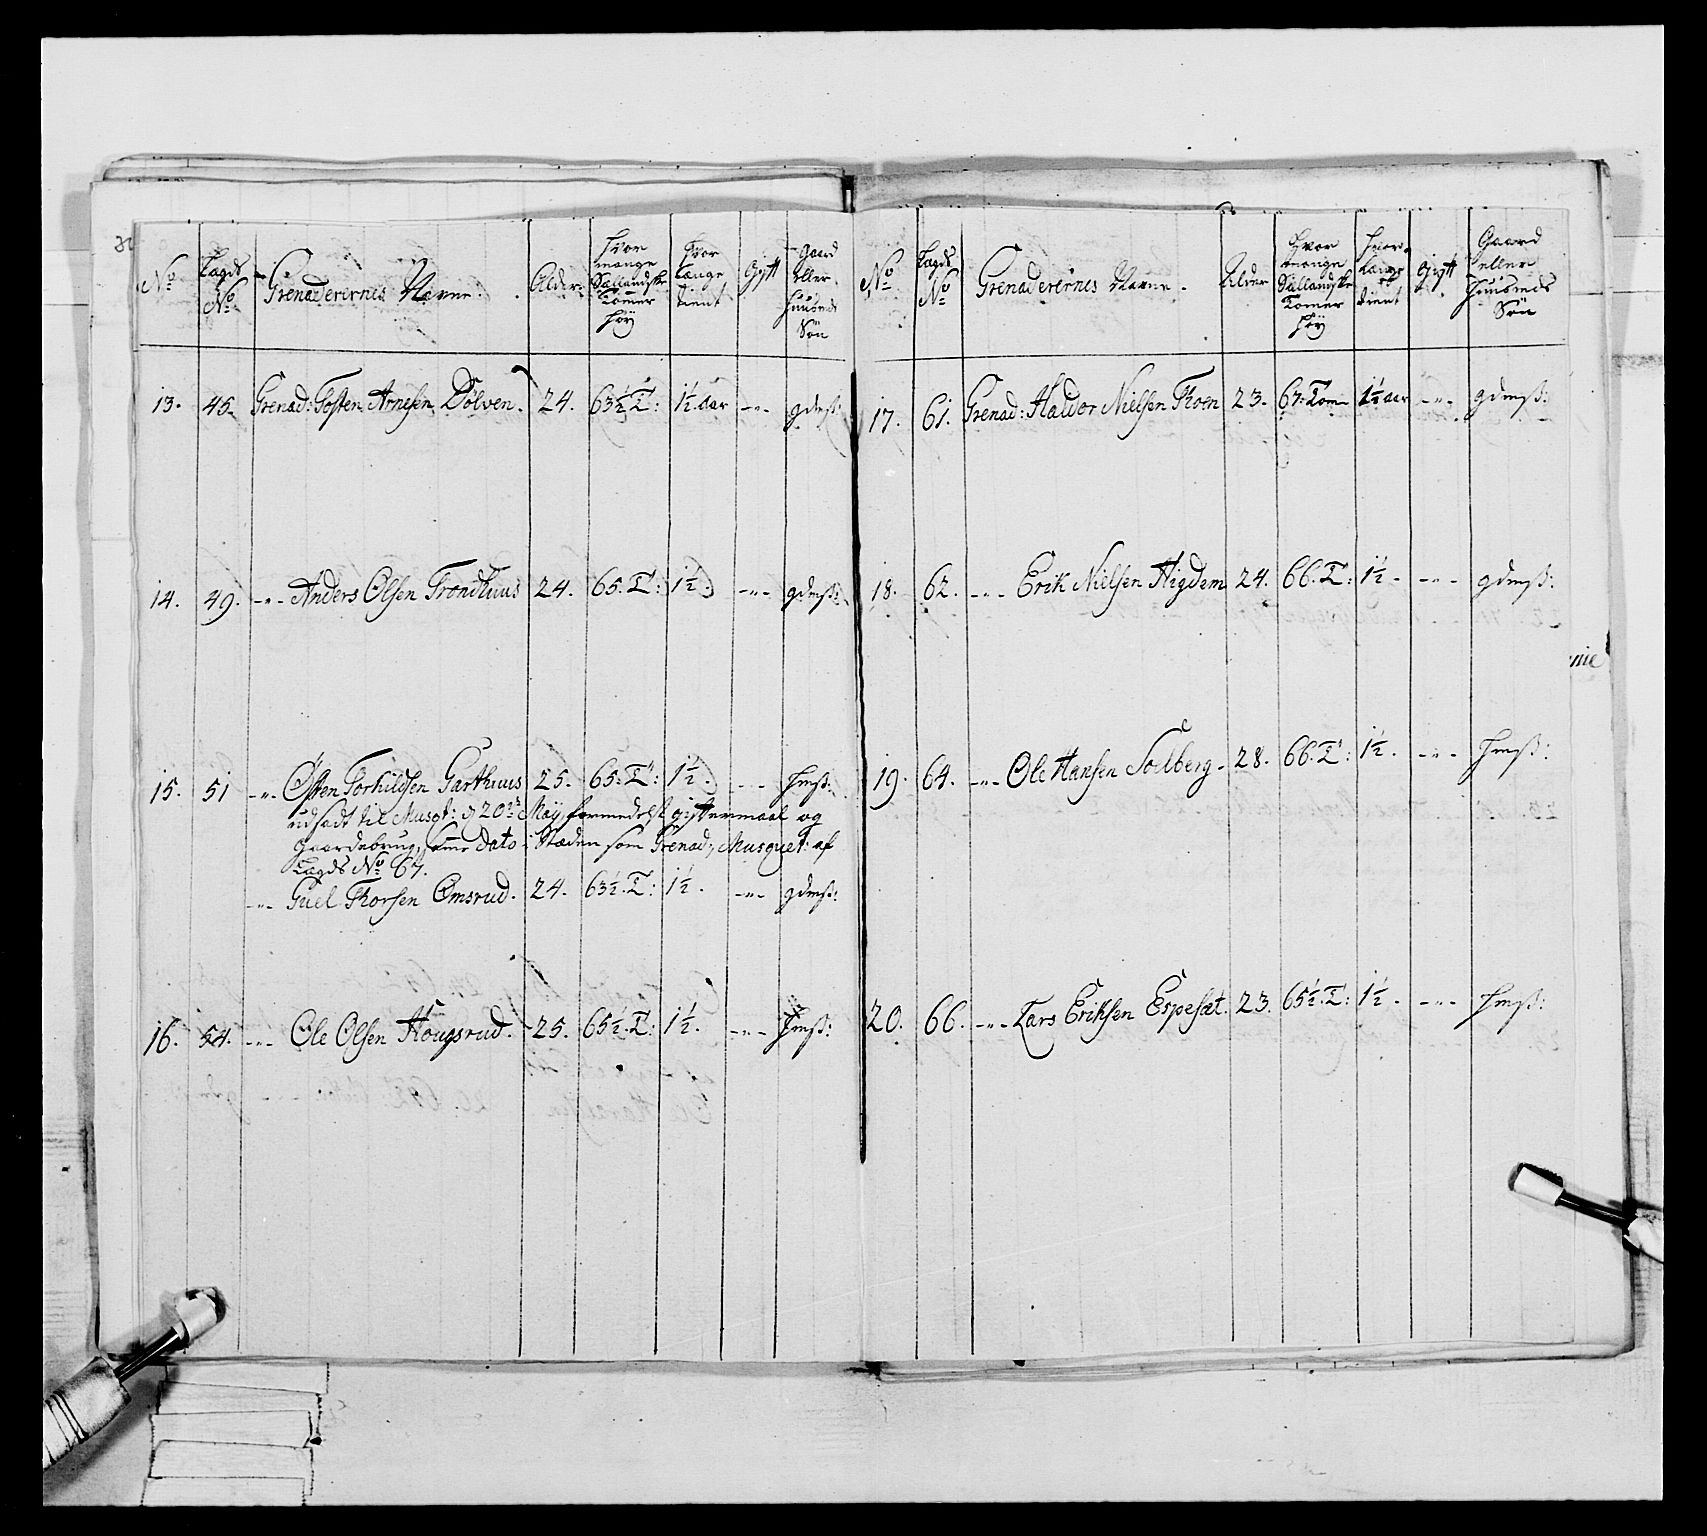 No
Lægds No
Grenaderernis Navne.
Alder
Hvor mange Siællandske Tomer Høy
Hvor Længe tient
Gift
Gaard eller Huusmds Søn
13. 45. Grenad: Tosten Arnesen Dölven. 24. 63½ T: 1½ aar -"- gdmß:
14. 49. -"- Anders Olsen Trondhuus 24. 65. T: 1½. -"- gdmß:
15. 51 -"- Østen Torkildsen Garthuus 25. 65: T: 1½. - - - Hmß:
udsadt til Musqt: d 20de Maÿ formedelst giftermaal og
Gaardebrug, Dato i Stæden som Grenad, Musquet: af
Lægds No 67.
-"- Guel Thorsen Omsrud. 24. 63½. T: 1½. -"- gdmß:
16. 54. -"- Ole Olsen Hougsrud. 25. 65½. T: 1½. -"- Hmß:
No
Lægds No
Grenaderernis Navne.
Alder
Hvor mange Siællandske Tomer Høy
Hvor Længe tient
Gift
Gaard eller Huusmds Søn
17. 61. Grenad: Haldor Nielsen Thoen 23. 67. Tom 1½ aar -"- gdmß:
18. 62. -"- Erik Nielsen Higdem 24. 66. T: 1½. -"- gdmß:
19. 64. -"- Ole Hansen Solberg. 28. 66. T: 1½. -"- Hmß:
20. 66. -"- Lars Eriksen Espesæt. 23. 65½. T: 1½. -"- Hmß: